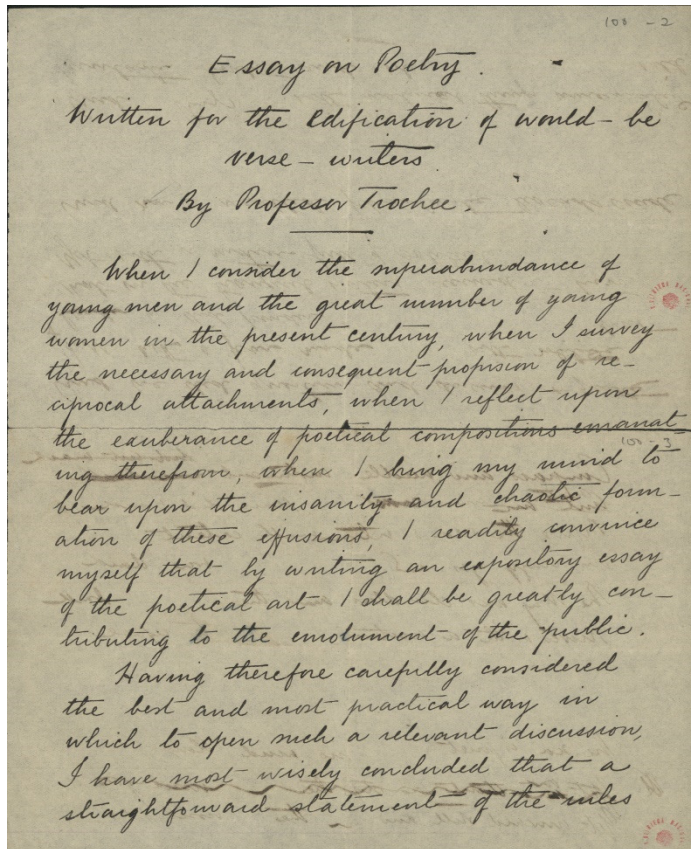 100 - 2
Essay on Poetry.
Written for the edification of would-be
verse-writers
By Professor Trochee.
When I consider the superabundance of
young men and the great number of young
women in the present century, when I survey
the necessary and consequent profusion of re-
ciprocal attachments, when I reflect upon
the exuberance of poetical compositions emanat
100 - 3
ing therefrom, when I bring my mind to
bear upon the insanity and chaotic form-
ation of these effusions, I readily convince
myself that by writing an expository essay
of the poetical art I shall be greatly con-
tributing to the emolument of the public.
Having therefore carefully considered
the best and most practical way in
which to open such a relevant discussion,
I have most wisely concluded that a
straightforward statement of the rules